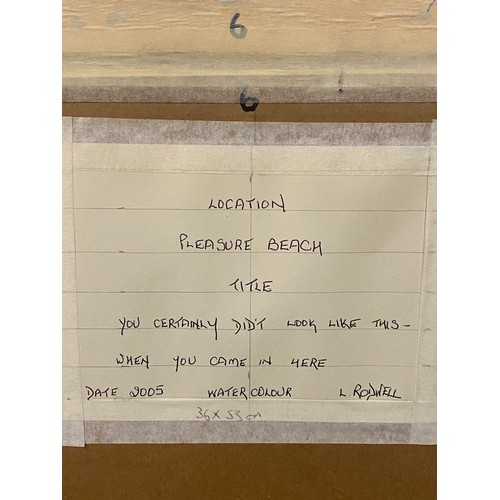 6
6
LOCATION
PLEASURE BEACH
TITLE
YOU CERTAINLY DID'T LOOK LIKE THIS-
WHEN YOU CAME IN HERE
DATE 2005 WATER COLOUR L RODWELL
36 x 53 cm